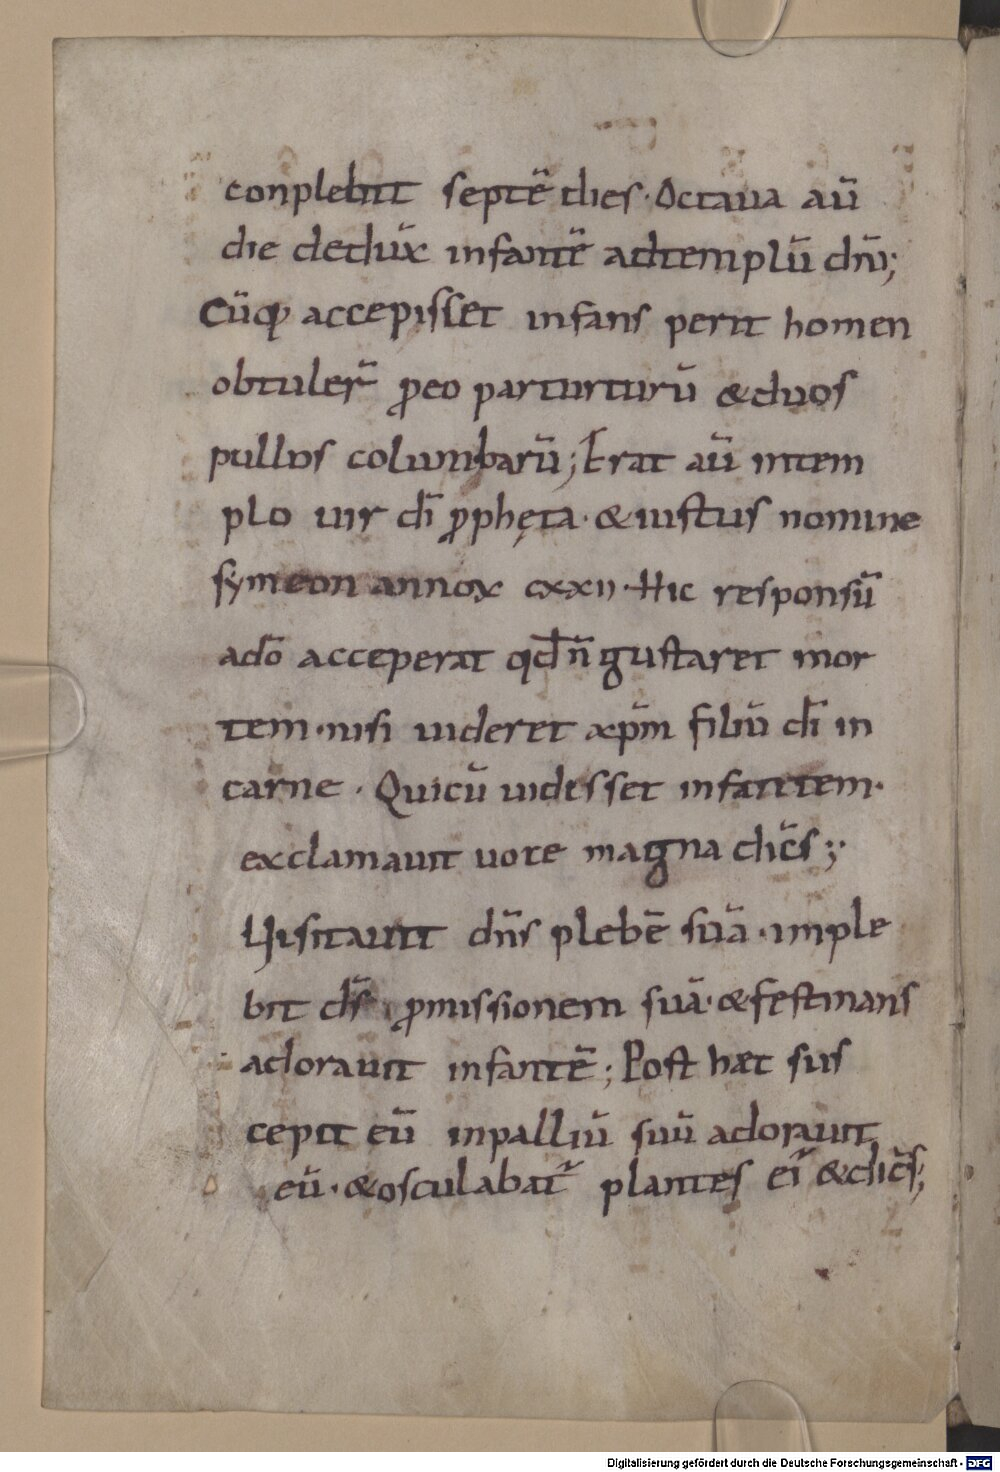 conplebit septē dies· Octaua aū
die dedux̄ infantē adtemplū dn̄i;
Cūq; accepisset infans perit homen
obtuler̄ ꝓeo parturturū &duos
pullos columbarū; Erat aū intem
plo uir dī ꝓphęta· &iustus nomine
symeon annox cxxii· Hic responsū
adō acceperat qd̄ n̄ gustaret mor
tem· nisi uideret xp̄m filiū dī in
carne· Quicū uidisset infantem·
exclamauit uoce magna dic̄s;
Uisitauit dn̄s plebē suā· imple
bit ds̄ ꝓmissionem suā· &festinans
adorauit infantē; Post hæc sus
cepit eū inpalliū suū adorauit
eū· &osculabat̄ plantes ei᷒ &dic̄s;
Digitalisierung gefördert durch die Deutsche Forschungsgemeinschaft - DFG